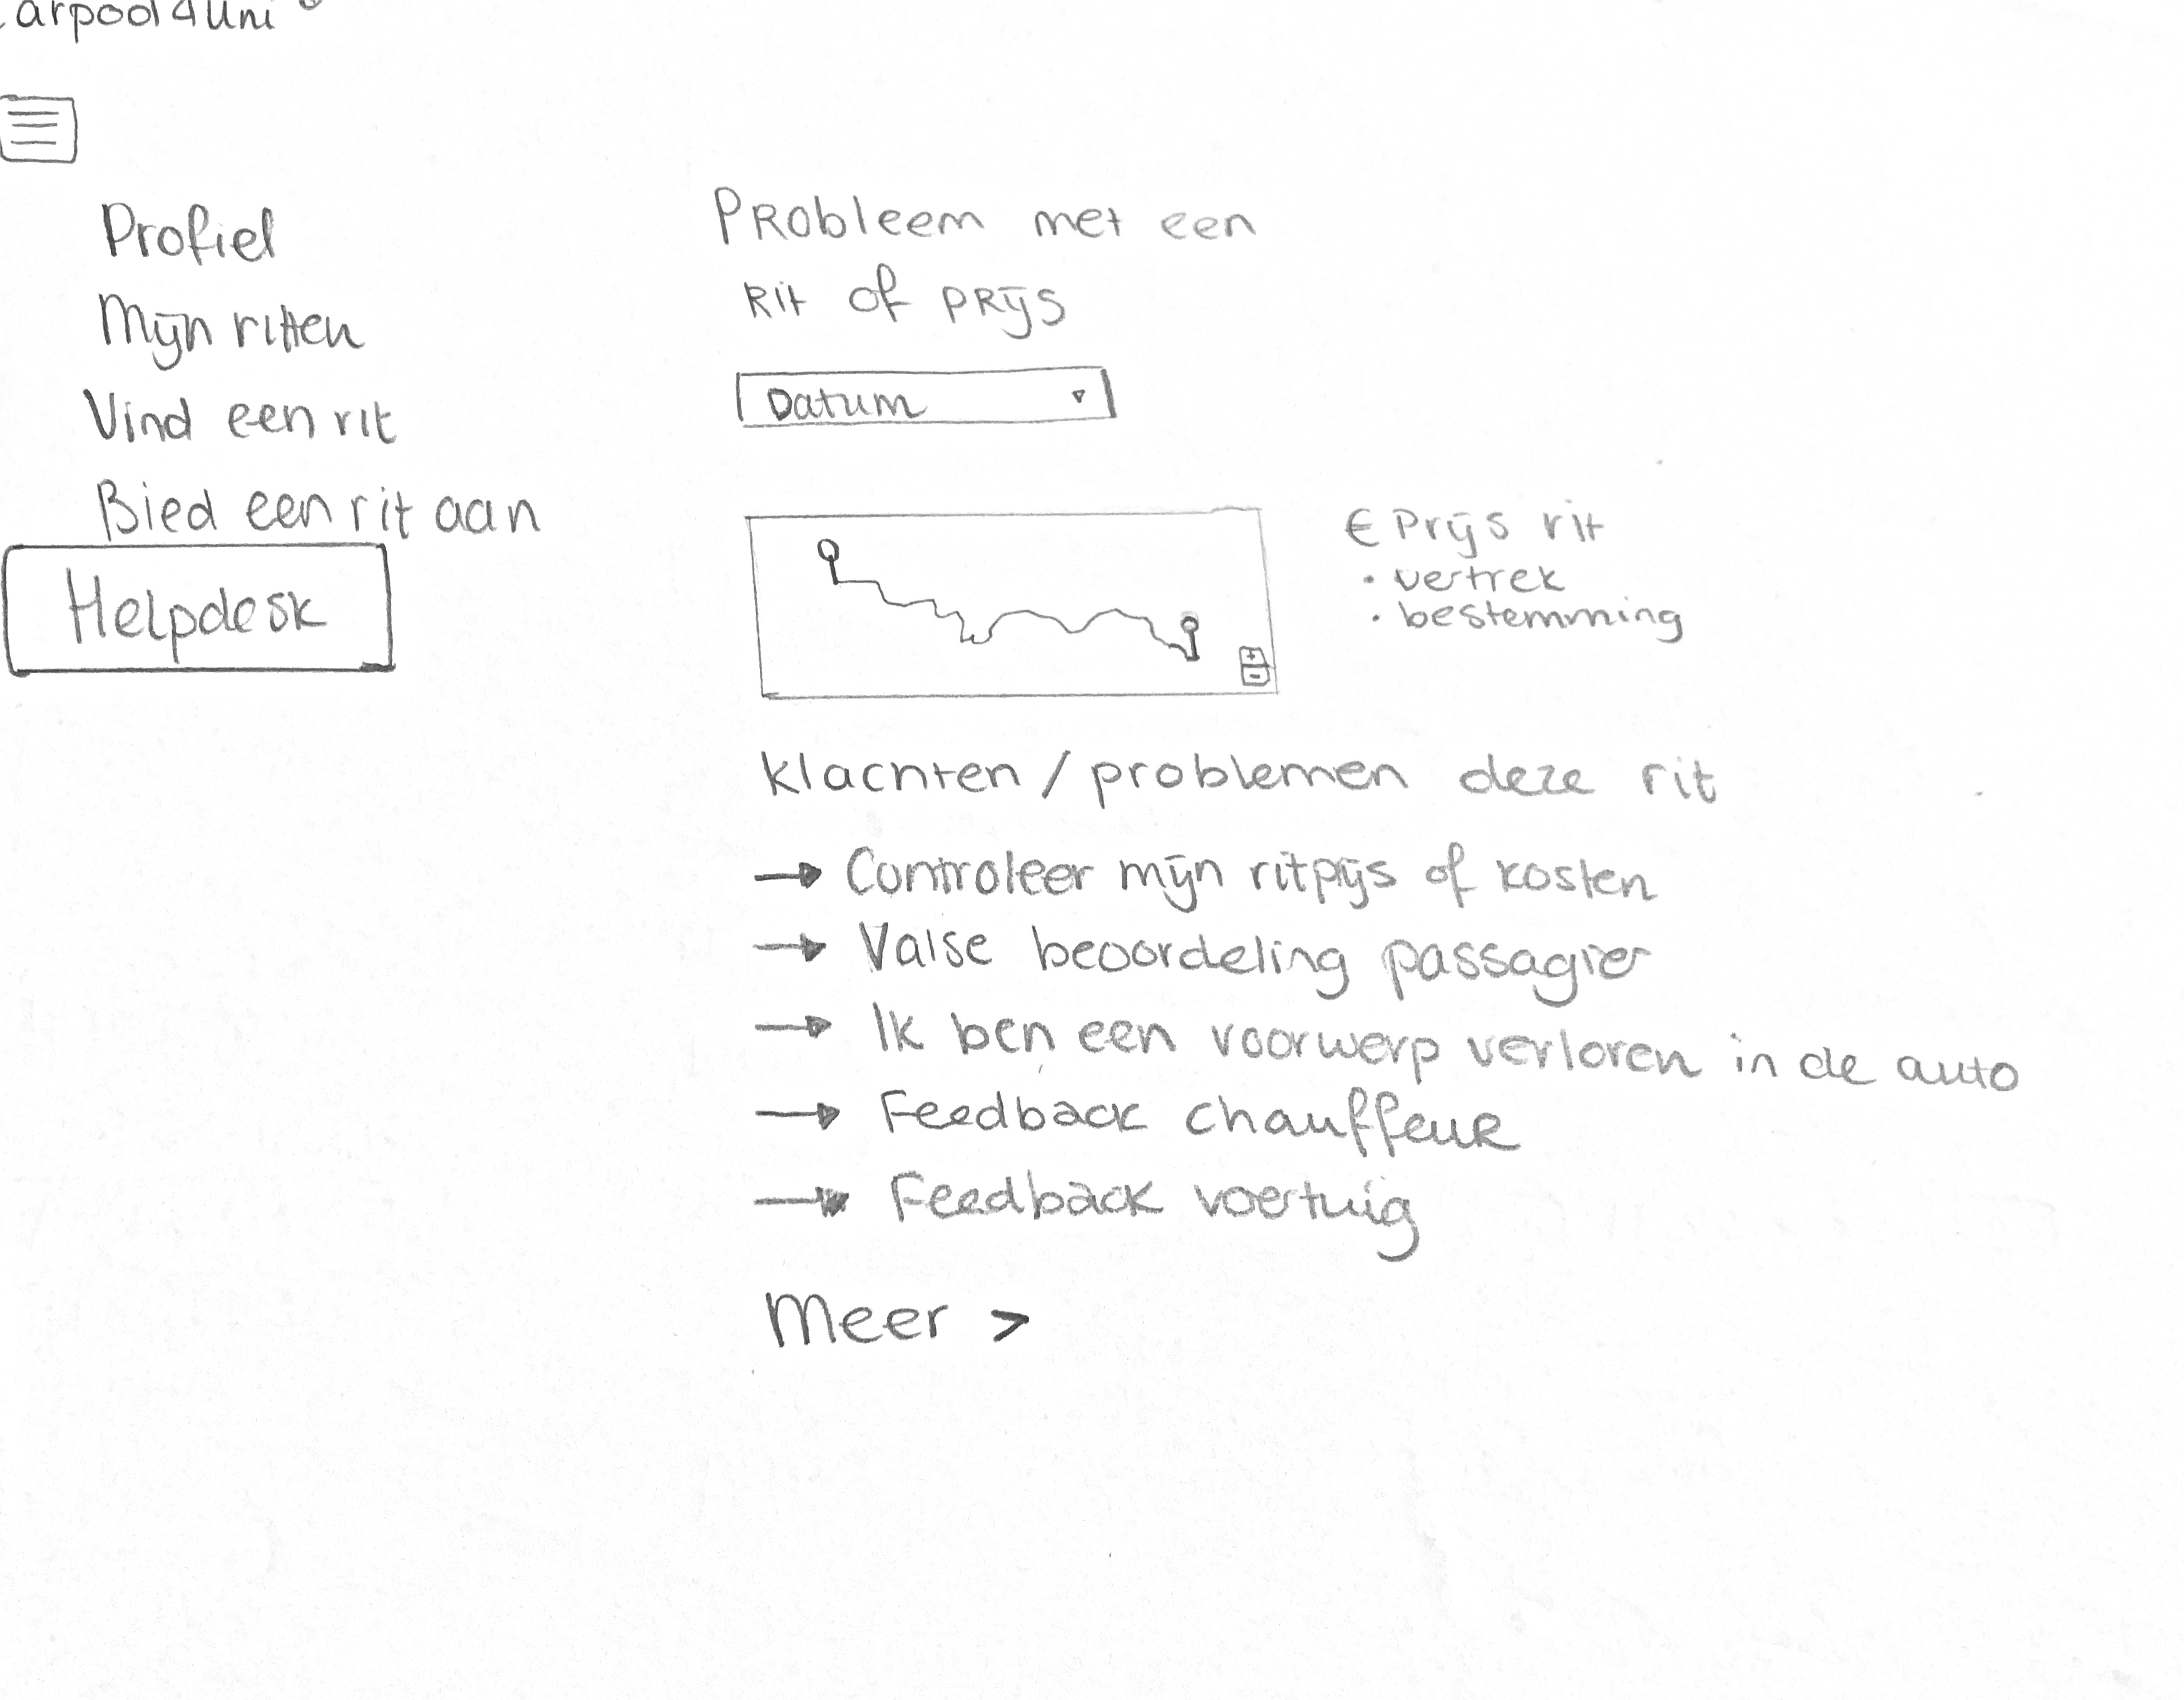 arpool4Uni
Profiel
Mijn ritten
Vind een rit
Bied een rit aan
Helpdesk
Probleem met een
Rit of prijs
Datum
€ Prijs rit
• vertrek
• bestemming
Klachten / problemen deze rit
→ Controleer mijn ritprijs of kosten
→ Valse beoordeling passagier
→ Ik ben een voorwerp verloren in de auto
→ Feedback chauffeur
→ Feedback voertuig
Meer >